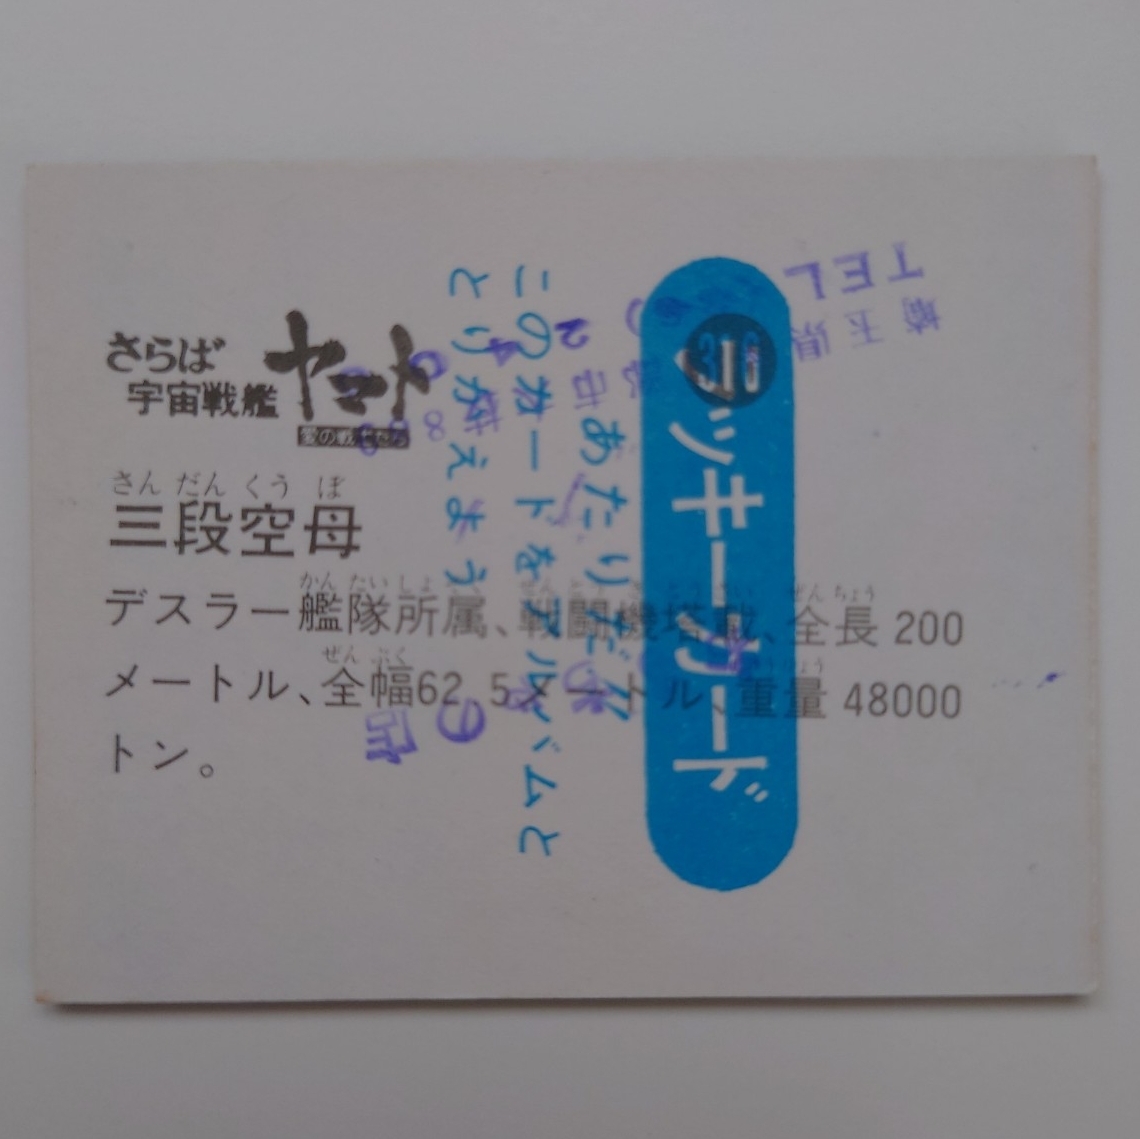 さらば
宇宙戦艦
ヤマト
愛の戦士たち
さん だん くう ぼ
三段空母
デスラー艦隊所属、戦闘機塔載、全長200
メートル、全幅62.5メートル、重量48000
トン。
ラッキーカード
あたりだ!!
このカードをアルバムと
とりかえよう
TEL
埼玉県